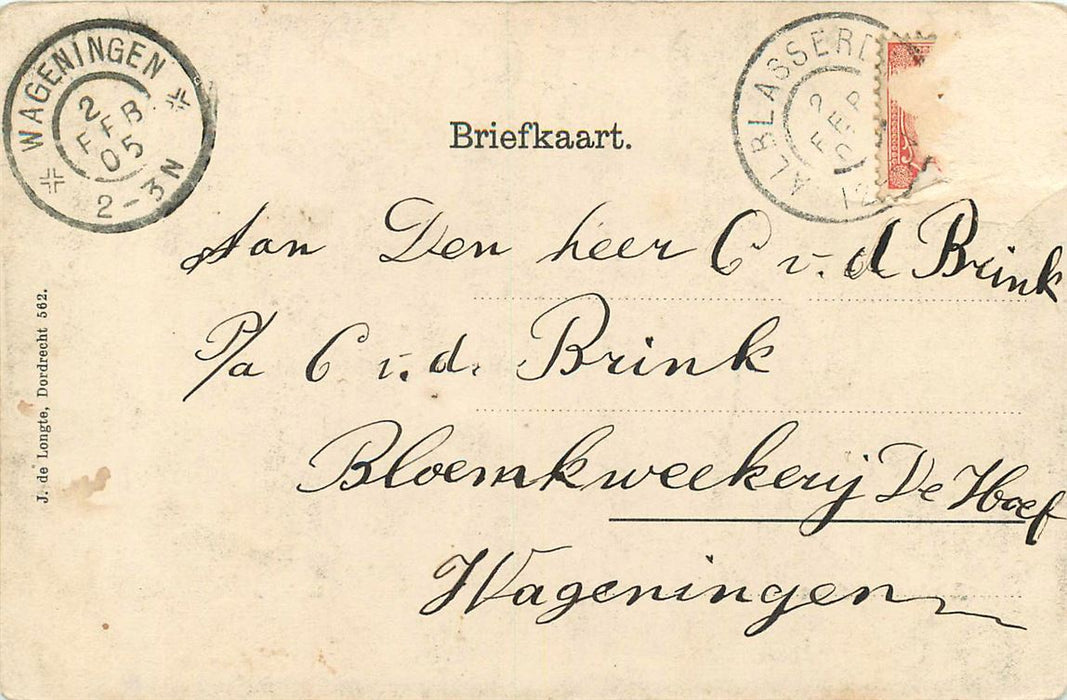 WAGENINGEN
2
FEB
05
2-3N
ALBLASSERD
2
FEB
12
Briefkaart.
Aan Den heer C v.d Brink
P/a C v.d. Brink
Bloemkweekerij De Hoef
Wageningen
J. de Longte, Dordrecht 562.